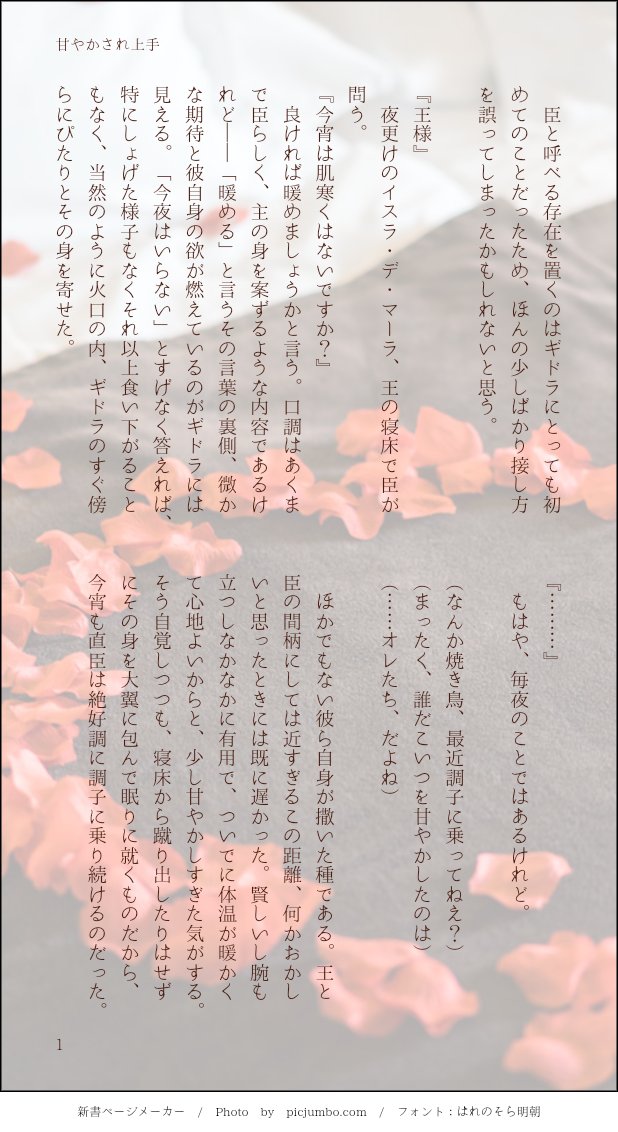 甘やかされ上手
臣と呼べる存在を置くのはギドラにとっても初
めてのことだったため、ほんの少しばかり接し方
を誤ってしまったかもしれないと思う。
『王様』
夜更けのイスラ・デ・マーラ、王の寝床で臣が
問う。
『今宵は肌寒くはないですか？』
良ければ暖めましょうかと言う。口調はあくま
で臣らしく、主の身を案ずるような内容であるけ
れど――「暖める」と言うその言葉の裏側、微か
な期待と彼自身の欲が燃えているのがギドラには
見える。「今夜はいらない」とすげなく答えれば、
特にしょげた様子もなくそれ以上食い下がること
もなく、当然のように火口の内、ギドラのすぐ傍
らにぴたりとその身を寄せた。
『………』
もはや、毎夜のことではあるけれど。
（なんか焼き鳥、最近調子に乗ってねえ？）
（まったく、誰だこいつを甘やかしたのは）
（……オレたち、だよね）
ほかでもない彼ら自身が撒いた種である。王と
臣の間柄にしては近すぎるこの距離、何かおかし
いと思ったときには既に遅かった。賢しいし腕も
立つしなかなかに有用で、ついでに体温が暖かく
て心地よいからと、少し甘やかしすぎた気がする。
そう自覚しつつも、寝床から蹴り出したりはせず
にその身を大翼に包んで眠りに就くものだから、
今宵も直臣は絶好調に調子に乗り続けるのだった。
1
新書ページメーカー / Photo by picjumbo.com / フォント：はれのそら明朝